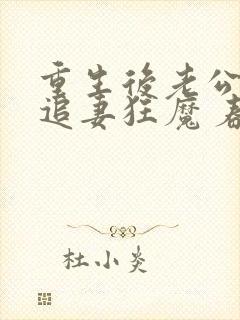 重生後老公
追妻狂魔
杜小炎